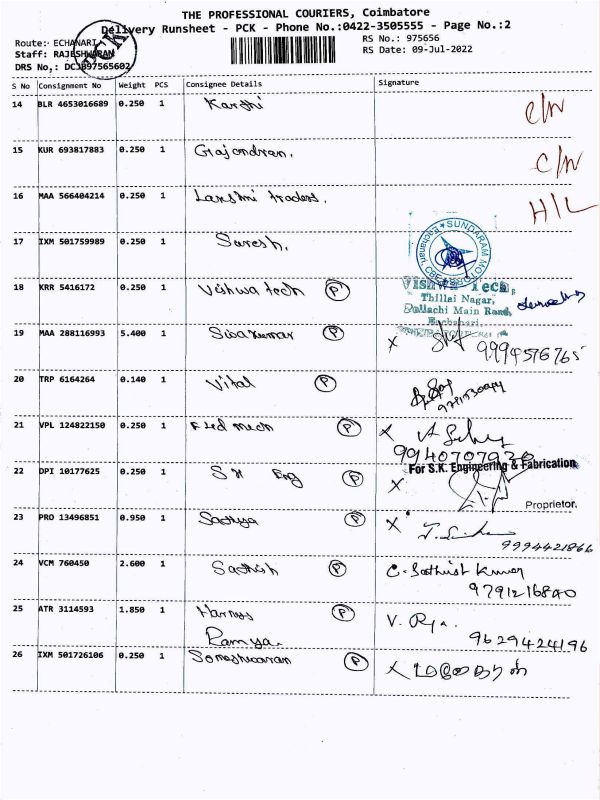 THE PROFESSIONAL COURIERS, Coimbatore
Delivery Runsheet - PCK - Phone No.:0422-3505555 - Page No.:2
Route: ECHANARI
RS No.: 975656
Staff: RAJESHWARAN
RS Date: 09-Jul-2022
DRS No,: DCJ897565602
PCK
S No Consignment No Weight PCS Consignee Details Signature
14 BLR 4653016689 0.250 1 Karthi C/N
15 KUR 693817883 0.250 1 Gajendran. C/N
16 MAA 566404214 0.250 1 Lakshmi traders. H/L
17 IXM 501759989 0.250 1 Suresh.
SUNDARAM MOTORS
Eachanari, CBE
18 KRR 5416172 0.250 1 Vishwa tech P
Vishwa Tech,
Thillai Nagar,
Pollachi Main Road,
Eachanari,
19 MAA 288116993 5.400 1 Sivakumar P X
20 TRP 6164264 0.140 1 Vital P
21 VPL 124822150 0.250 1 Fled mech P X
9940707920
22 DPI 10177625 0.250 1 S K Eng P X
For S.K. Engineering & Fabrication
Proprietor.
23 PRO 13496851 0.950 1 Sathya P X
9994421866
24 VCM 760450 2.600 1 Sathish P C. Sathish Kumar
9791216840
25 ATR 3114593 1.850 1 P V. Raja.
Ramya 9629424196
26 IXM 501726106 0.250 1 Someshwaran P X